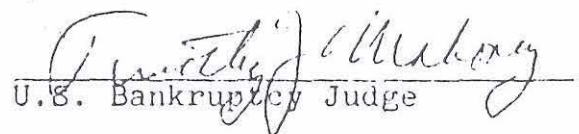 Timothy J Mahoney
U.S. Bankruptcy Judge